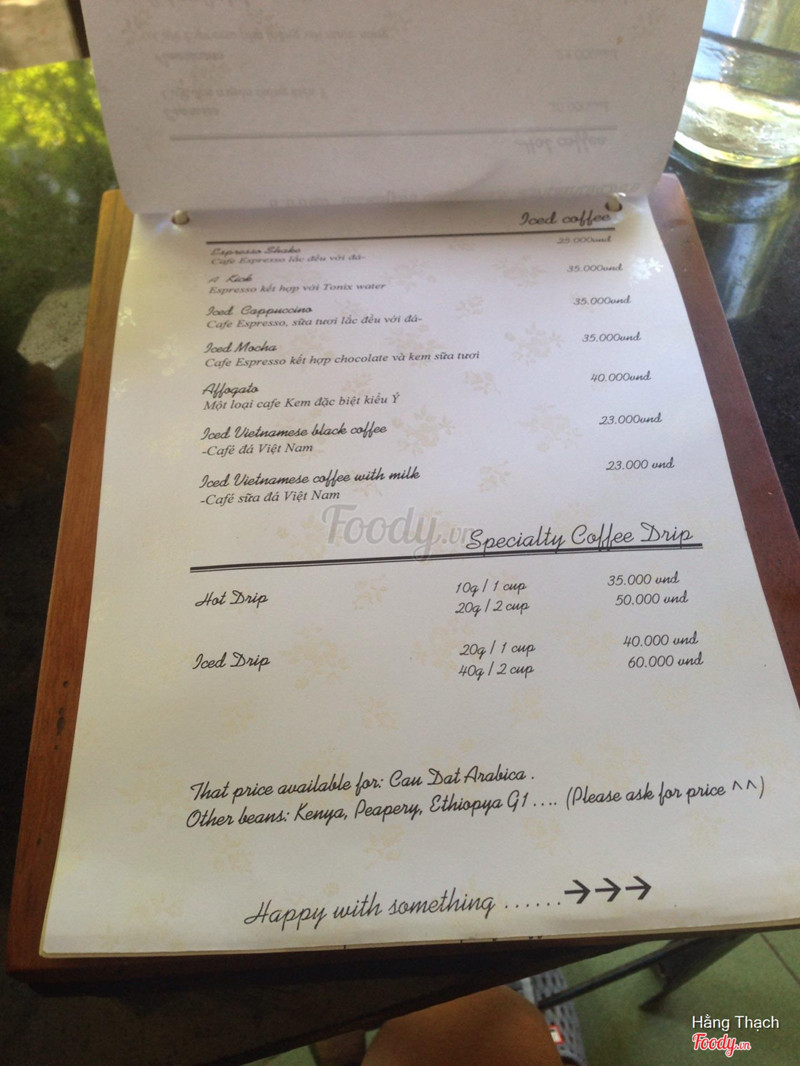 Hot coffee
Iced coffee
Espresso Shake 25.000vnd
Cafe Espresso lắc đều với đá-
A Kick 35.000vnd
Espresso kết hợp với Tonix water
Iced Cappuccino 35.000vnd
Cafe Espresso, sữa tươi lắc đều với đá-
Iced Mocha 35.000vnd
Cafe Espresso kết hợp chocolate và kem sữa tươi
Affogato 40.000vnd
Một loại cafe Kem đặc biệt kiểu Ý
Iced Vietnamese black coffee 23.000vnd
-Café đá Việt Nam
Iced Vietnamese coffee with milk 23.000 vnd
-Café sữa đá Việt Nam
Foody.vn
Specialty Coffee Drip
Hot Drip 10g / 1 cup 35.000 vnd
20g / 2 cup 50.000 vnd
Iced Drip 20g / 1 cup 40.000 vnd
40g / 2 cup 60.000 vnd
That price available for: Cau Dat Arabica .
Other beans: Kenya, Peapery, Ethiopya G1 .... (Please ask for price ^^)
Happy with something ......→→→
Hằng Thạch
Foody.vn